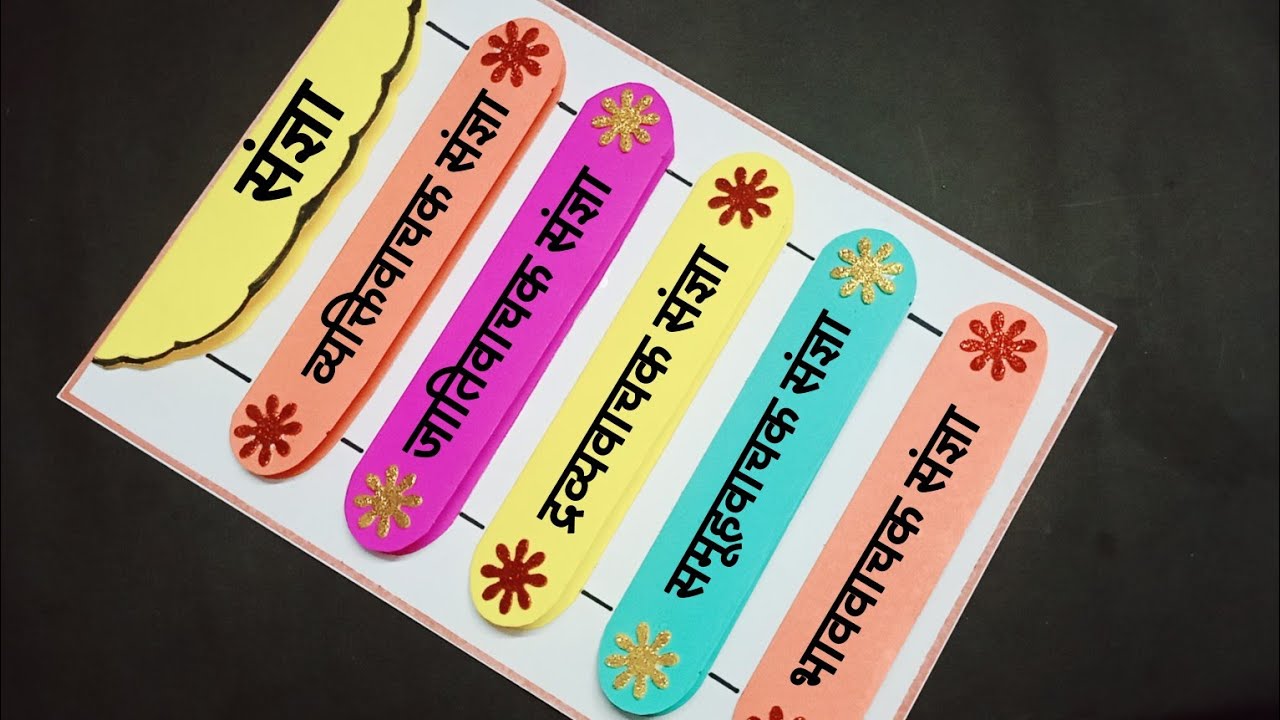 संज्ञा
व्यक्तिवाचक संज्ञा
जातिवाचक संज्ञा
द्रव्यवाचक संज्ञा
समूहवाचक संज्ञा
भाववाचक संज्ञा